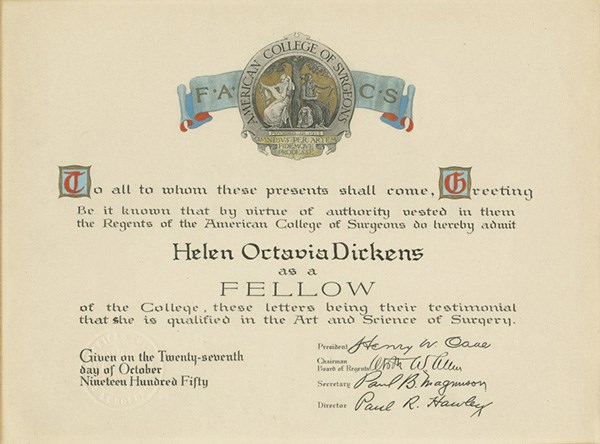 F·A·C·S
AMERICAN COLLEGE OF SVRGEONS
FOUNDED IN 1913
OMNIBVS PER ARTEM
FIDEMQVE
PRODESSE
To all to whom these presents shall come, Greeting
Be it known that by virtue of authority vested in them
the Regents of the American College of Surgeons do hereby admit
Helen Octavia Dickens
as a
FELLOW
of the College, these letters being their testimonial
that she is qualified in the Art and Science of Surgery.
Given on the Twenty-seventh
day of October
Nineteen Hundred Fifty
President Henry W. Cave
Chairman
Board of Regents Arthur W. Allen
Secretary Paul B. Magnuson
Director Paul R. Hawley